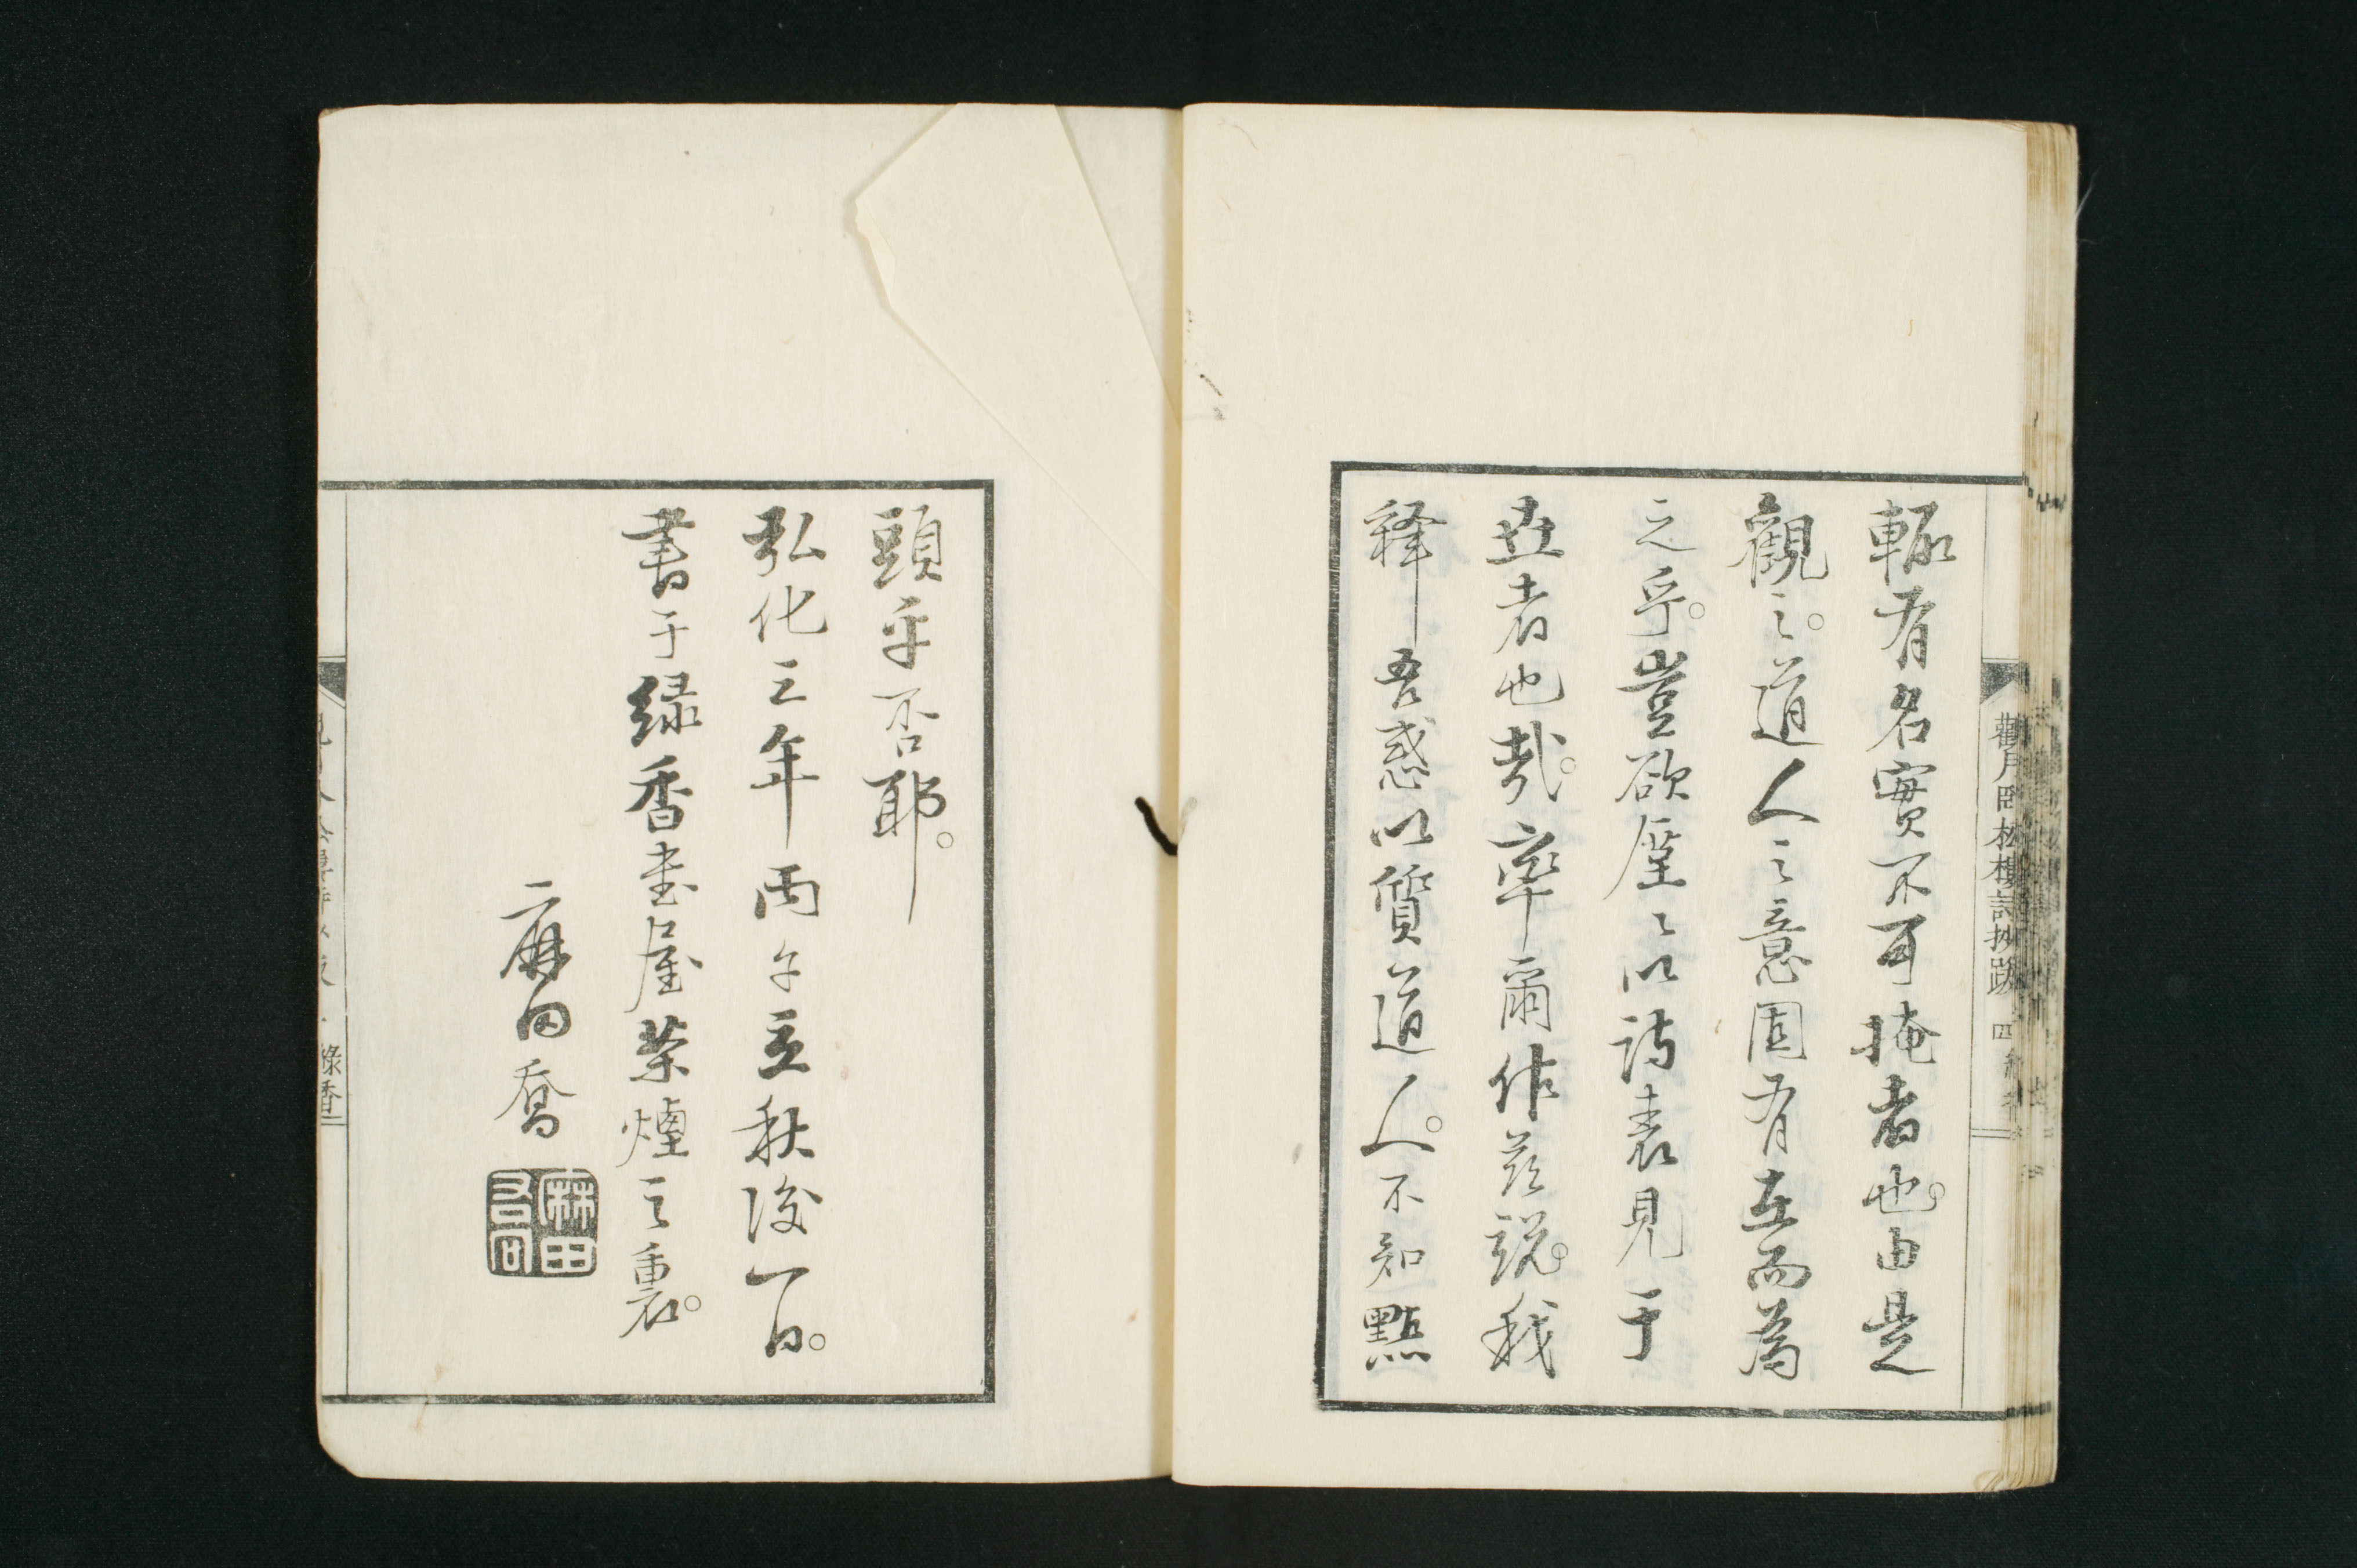 輙有名實不可掩者也。由是
觀之。道人之意固有在而為
之乎。豈欲屋々以詩表見于
世者也哉。率爾作茲説。我
釋吾惑以質道人。不知點
頭乎否耶。
弘化三年丙午立秋後一日。
書于緑香書屋茶煙之裏。
麻田喬
麻田
觀月臥松樓詩抄跋 四
綠香